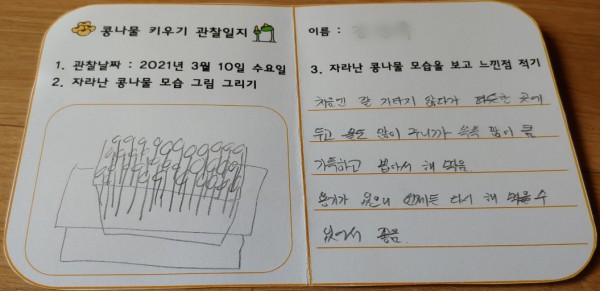 콩나물 키우기 관찰일지
1. 관찰날짜 : 2021년 3월 10일 수요일
2. 자라난 콩나물 모습 그림 그리기
이름 :
3. 자라난 콩나물 모습을 보고 느낀점 적기
처음엔 잘 자라지 않다가 따뜻한 곳에
두고 물도 많이 주니까 쑥쑥 많이 큼
수확하고 볶아서 해 먹음
용기가 있으니 언제든 다시 해 먹을 수
있어서 좋음.